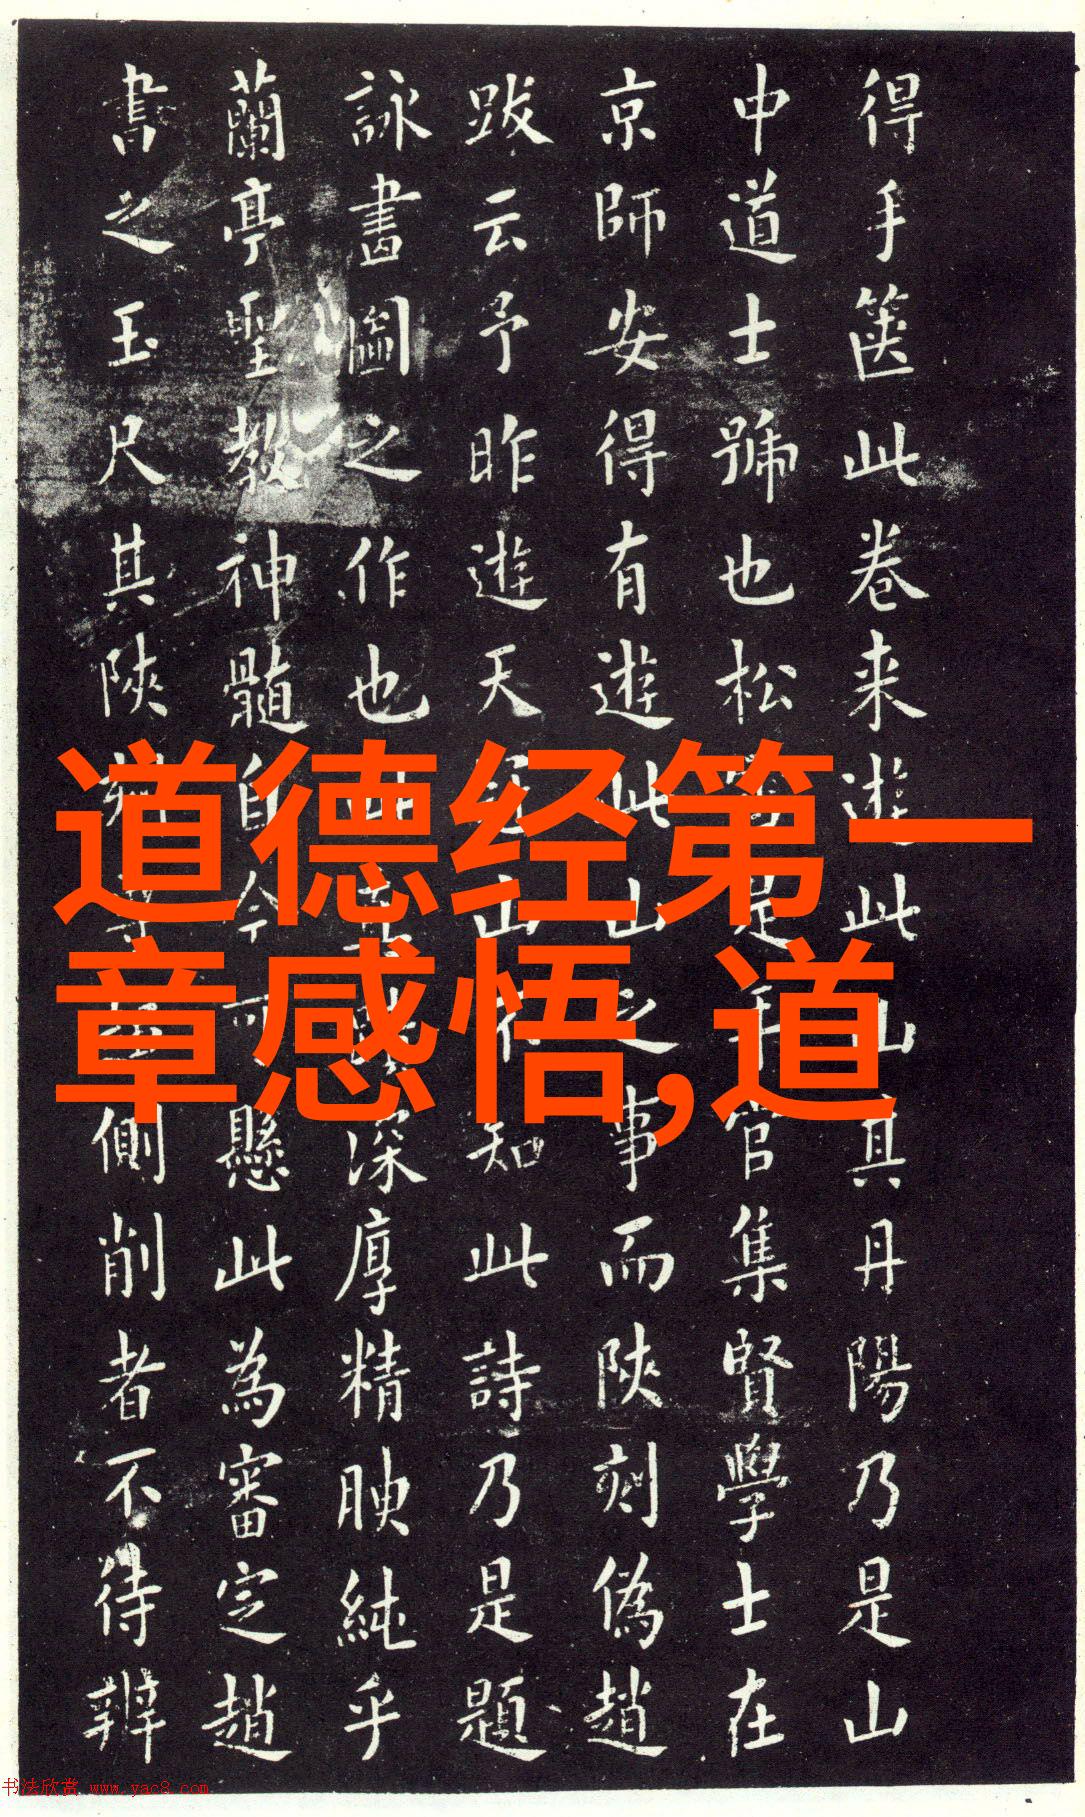 得手箧此卷来遊此山真丹陽乃是山
中道士號也松是官集賢學士在
京師安得有遊此山之事而陝刻偽趙
跋云予昨遊天山知此詩乃是題
詠畫圖之作也此深厚精腴純乎
蘭亭聖教神髓自今可懸此為審定趙
書之玉尺其陝刻側削者不待辨
道德经第一
章感悟,道
书法欣赏 www.yac8.com